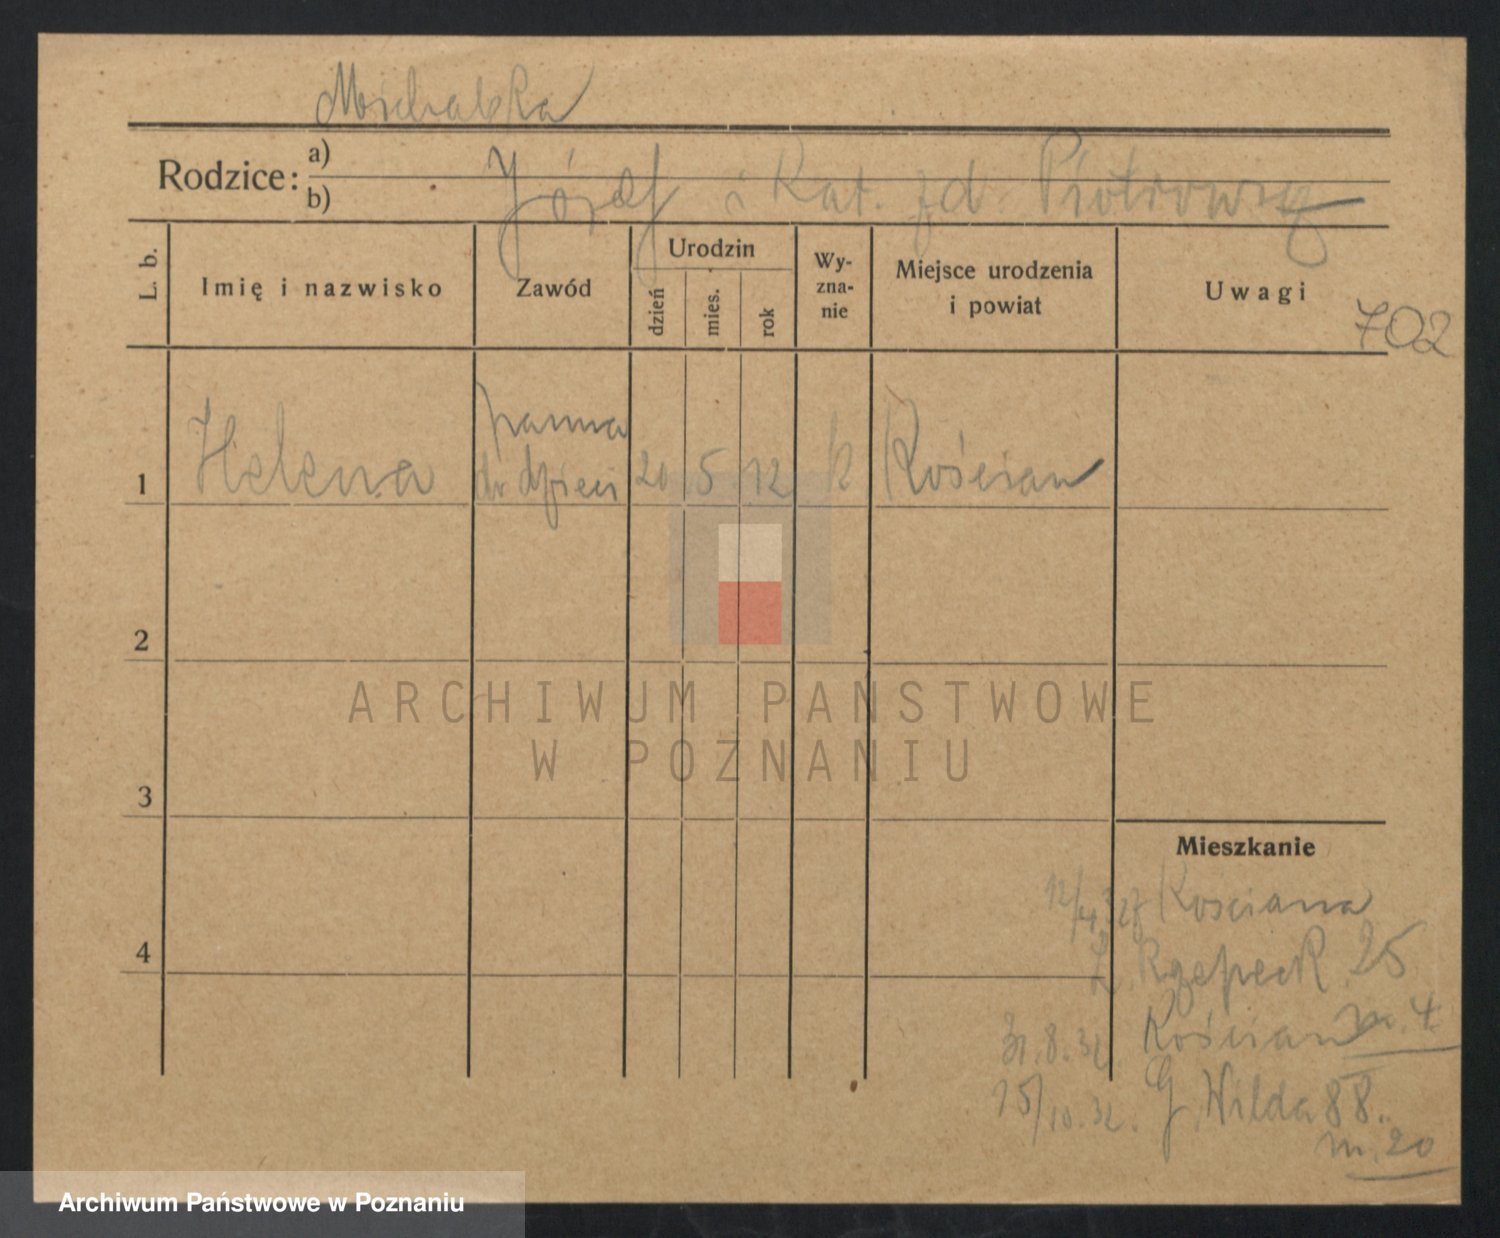 Michalska
Rodzice: a)
b)
Józef i Kat. zd. Piotrowsk
L. b.
Imię i nazwisko
Zawód
Urodzin
dzień
mies.
rok
Wy-
zna-
nie
Miejsce urodzenia
i powiat
Uwagi
702
panna
1 Helena do dzieci 20 5 12 k Kościan
2
ARCHIWUM PAŃSTWOWE
W POZNANIU
3
Mieszkanie
12/4 32 z Kościana
Rzepeck. 25
m. 4
31.8.32. Kościan
15/10.32. G. Wilda 88.
m. 20
4
Archiwum Państwowe w Poznaniu